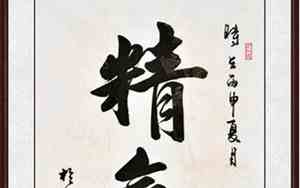 時在丙申夏月
精
於